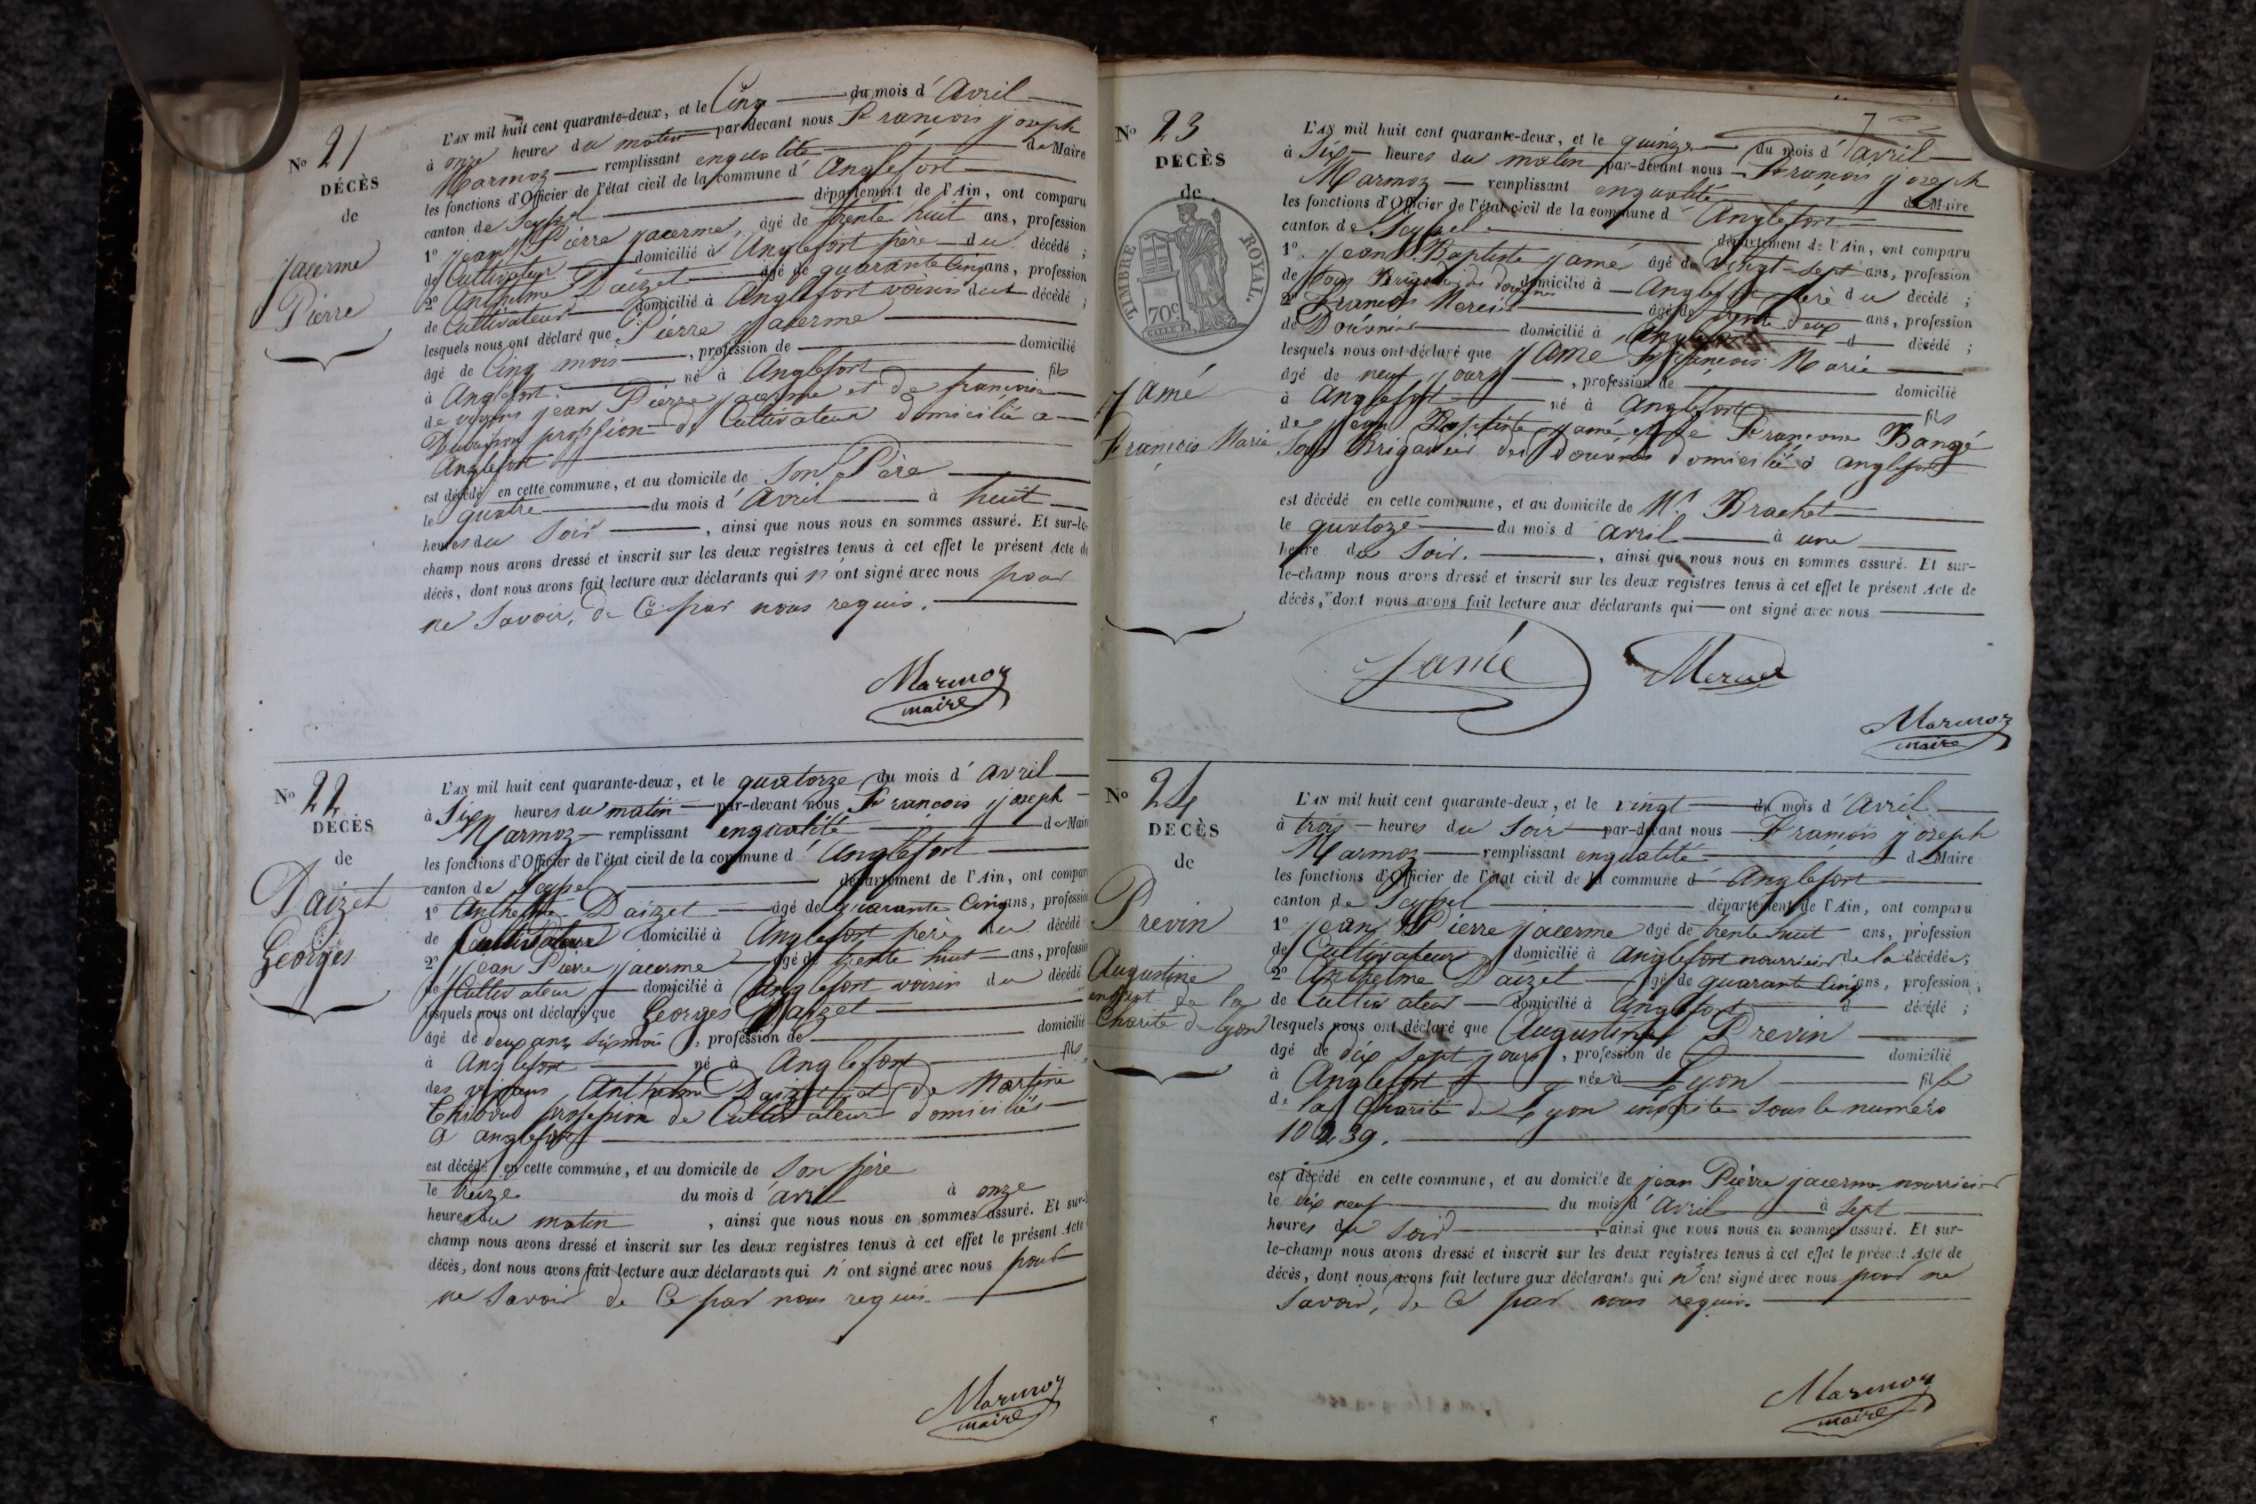 N° 21
DÉCÈS
de
Jacerme
Pierre
L'AN mil huit cent quarante-deux, et le Cinq du mois d'Avril
à onze heures du matin par-devant nous François joseph
Marmoz remplissant enqualité de Maire
les fonctions d'Officier de l'état civil de la commune d'Anglefort
canton de Seyssel département de l'Ain, ont comparu
1° jean Pierre jacerme, agé de trente huit ans, profession
de Cultivateur domicilié à Anglefort père du décédé ;
2° Anthelme Daizet agé de quarante Cinq ans, profession
de Cultivateur domicilié à Anglefort voisin du décédé ;
lesquels nous ont déclaré que Pierre jacerme
agé de Cinq mois, profession de domicilié
à Anglefort né à Anglefort fils
de vivans jean Pierre jacerme et de françoise
profession de Cultivateur domicilié a
Anglefort
est décédé en cette commune, et au domicile de Son Père
le quatre du mois d'Avril à huit
heures du Soir, ainsi que nous nous en sommes assuré. Et sur-le-
champ nous avons dressé et inscrit sur les deux registres tenus à cet effet le présent Acte de
décès, dont nous avons fait lecture aux déclarants qui n'ont signé avec nous pour
ne Savoir, de Ce par nous requis.
Marmoz
maire
N° 22
DÉCÈS
de
Daizet
Georges
L'AN mil huit cent quarante-deux, et le quatorze du mois d'avril
à Six heures du matin par-devant nous François joseph
Marmoz remplissant enqualité de Maire
les fonctions d'Officier de l'état civil de la commune d'Anglefort
canton de Seyssel département de l'Ain, ont comparu
1° Anthelme Daizet agé de quarante Cinq ans, profession
de Cultivateur domicilié à Anglefort père du décédé
2° jean Pierre jacerme agé de trente huit ans, profession
de Cultivateur domicilié à Anglefort voisin du décédé
lesquels nous ont déclaré que Georges Daizet
agé de deux ans Six mois, profession de domicilié
à Anglefort né à Anglefort fils
des vivans Anthelme Daizet et de Martine
Thiboud profession de Cultivateurs domiciliés
a anglefort
est décédé en cette commune, et au domicile de Son père
le treize du mois d'avril à onze
heures du matin, ainsi que nous nous en sommes assuré. Et sur-
champ nous avons dressé et inscrit sur les deux registres tenus à cet effet le présent Acte
décès, dont nous avons fait lecture aux déclarants qui n'ont signé avec nous pour
ne Savoir de Ce par nous requis.
Marmoz
maire
N° 23
DÉCÈS
de
TIMBRE ROYAL.
70c
jamé
François Marie
L'AN mil huit cent quarante-deux, et le quinze du mois d'avril
à Six heures du matin par-devant nous François joseph
Marmoz remplissant enqualité de Maire
les fonctions d'Officier de l'état civil de la commune d'Anglefort
canton de Seyssel département de l'Ain, ont comparu
1° jean Baptiste jamé agé de vingt-sept ans, profession
de Sous Brigadier des douanes domicilié à Anglefort père du décédé ;
2° François agé de trente deux ans, profession
de Douanier domicilié à Anglefort d décédé ;
lesquels nous ont déclaré que jamé François Marie
agé de neuf jours, profession de domicilié
à Anglefort né à Anglefort fils
de jean Baptiste jamé, et de Françoise Bangé
Sous Brigadier des Douanes domicilié à anglefort
est décédé en cette commune, et au domicile de Mr Brachet
le quatoze du mois d'avril à une
heure du Soir., ainsi que nous nous en sommes assuré. Et sur-
le-champ nous avons dressé et inscrit sur les deux registres tenus à cet effet le présent Acte de
décès, dont nous avons fait lecture aux déclarants qui ont signé avec nous
Jamé
Marmoz
maire
N° 24
DÉCÈS
de
Previn
Augustine
enfent de la
Charité de Lyon
L'AN mil huit cent quarante-deux, et le vingt du mois d'Avril
à trois heures du Soir par-devant nous François joseph
Marmoz remplissant enqualité de Maire
les fonctions d'Officier de l'état civil de la commune d'Anglefort
canton de Seyssel département de l'Ain, ont comparu
1° jean Pierre jacerme agé de trente huit ans, profession
de Cultivateur domicilié à Anglefort nourricier de la décédée ;
2° Anthelme Daizet agé de quarante Cinq ans, profession
de Cultivateur domicilié à Anglefort d décédé ;
lesquels nous ont déclaré que Augustine Previn
agé de dix Sept jours, profession de domicilié
à Anglefort née à Lyon fille
de la Charité de Lyon inscrite Sous le numéro
10239.
est décédé en cette commune, et au domicile de jean Pierre jacerme nourricier
le dix neuf du mois d'Avril à Sept
heures du Soir, ainsi que nous nous en sommes assuré. Et sur-
le-champ nous avons dressé et inscrit sur les deux registres tenus à cet effet le présent Acte de
décès, dont nous avons fait lecture aux déclarants qui n'ont signé avec nous pour ne
Savoir, de Ce par nous requis.
Marmoz
maire